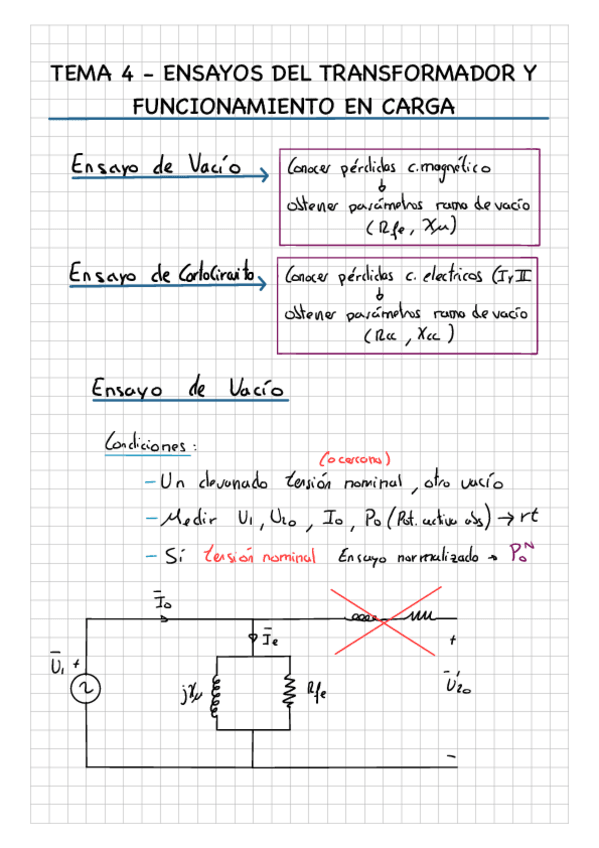 TEMA 4 - ENSAYOS DEL TRANSFORMADOR Y
FUNCIONAMIENTO EN CARGA
Ensayo de Vacío
Conocer pérdidas c. magnético
obtener parámetros rama de vacío
(Rfe, Xμ)
Ensayo de CortoCircuito
Conocer pérdidas c. electricos (I y II
obtener parámetros rama de vacío
(Rcc, Xcc)
Ensayo de Vacío
Condiciones:
(o cercana)
- Un devanado tensión nominal, otro vacío
- Medir U1, U20, I0, P0 (Pot. activa abs) → rt
- Si tensión nominal Ensayo normalizado → P0^N
I̅0
I̅e
U̅1 +
jXμ
Rfe
+
U̅'20
-